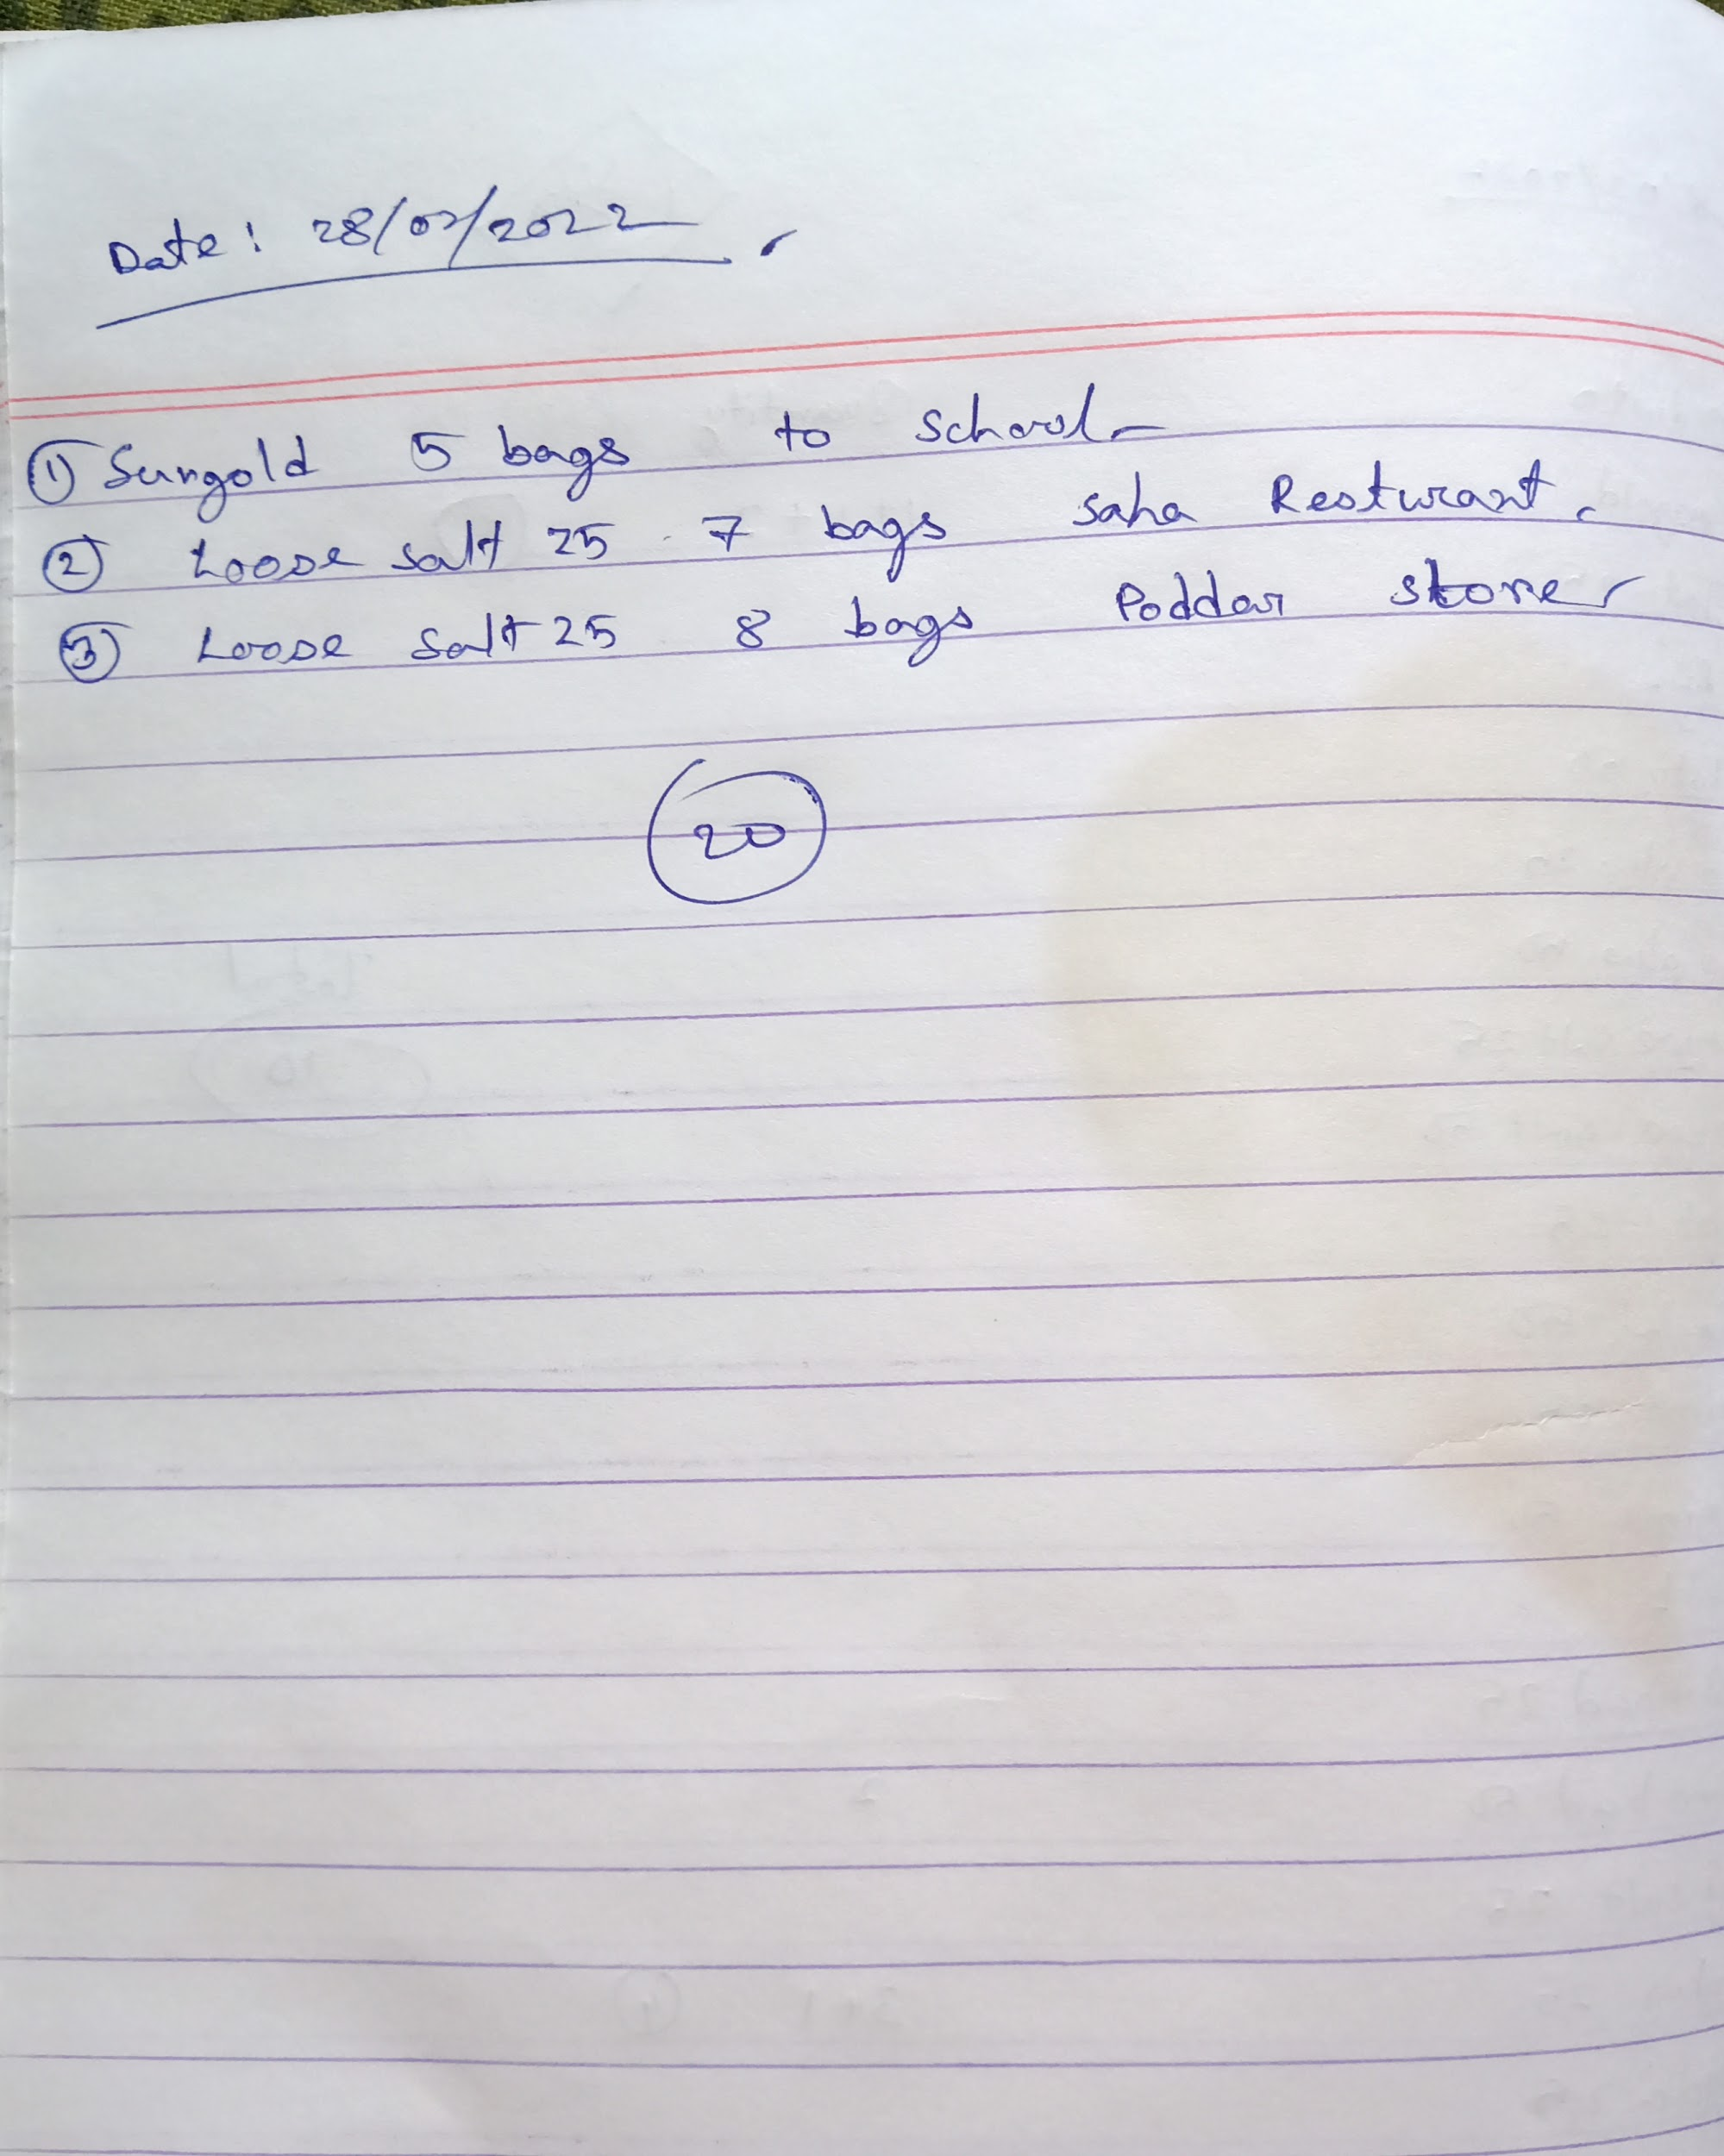 Date: 28/07/2022
① Sungold 5 bags to school
② Loose salt 25 7 bags saha Resturant.
③ Loose salt 25 8 bags Poddar store
20